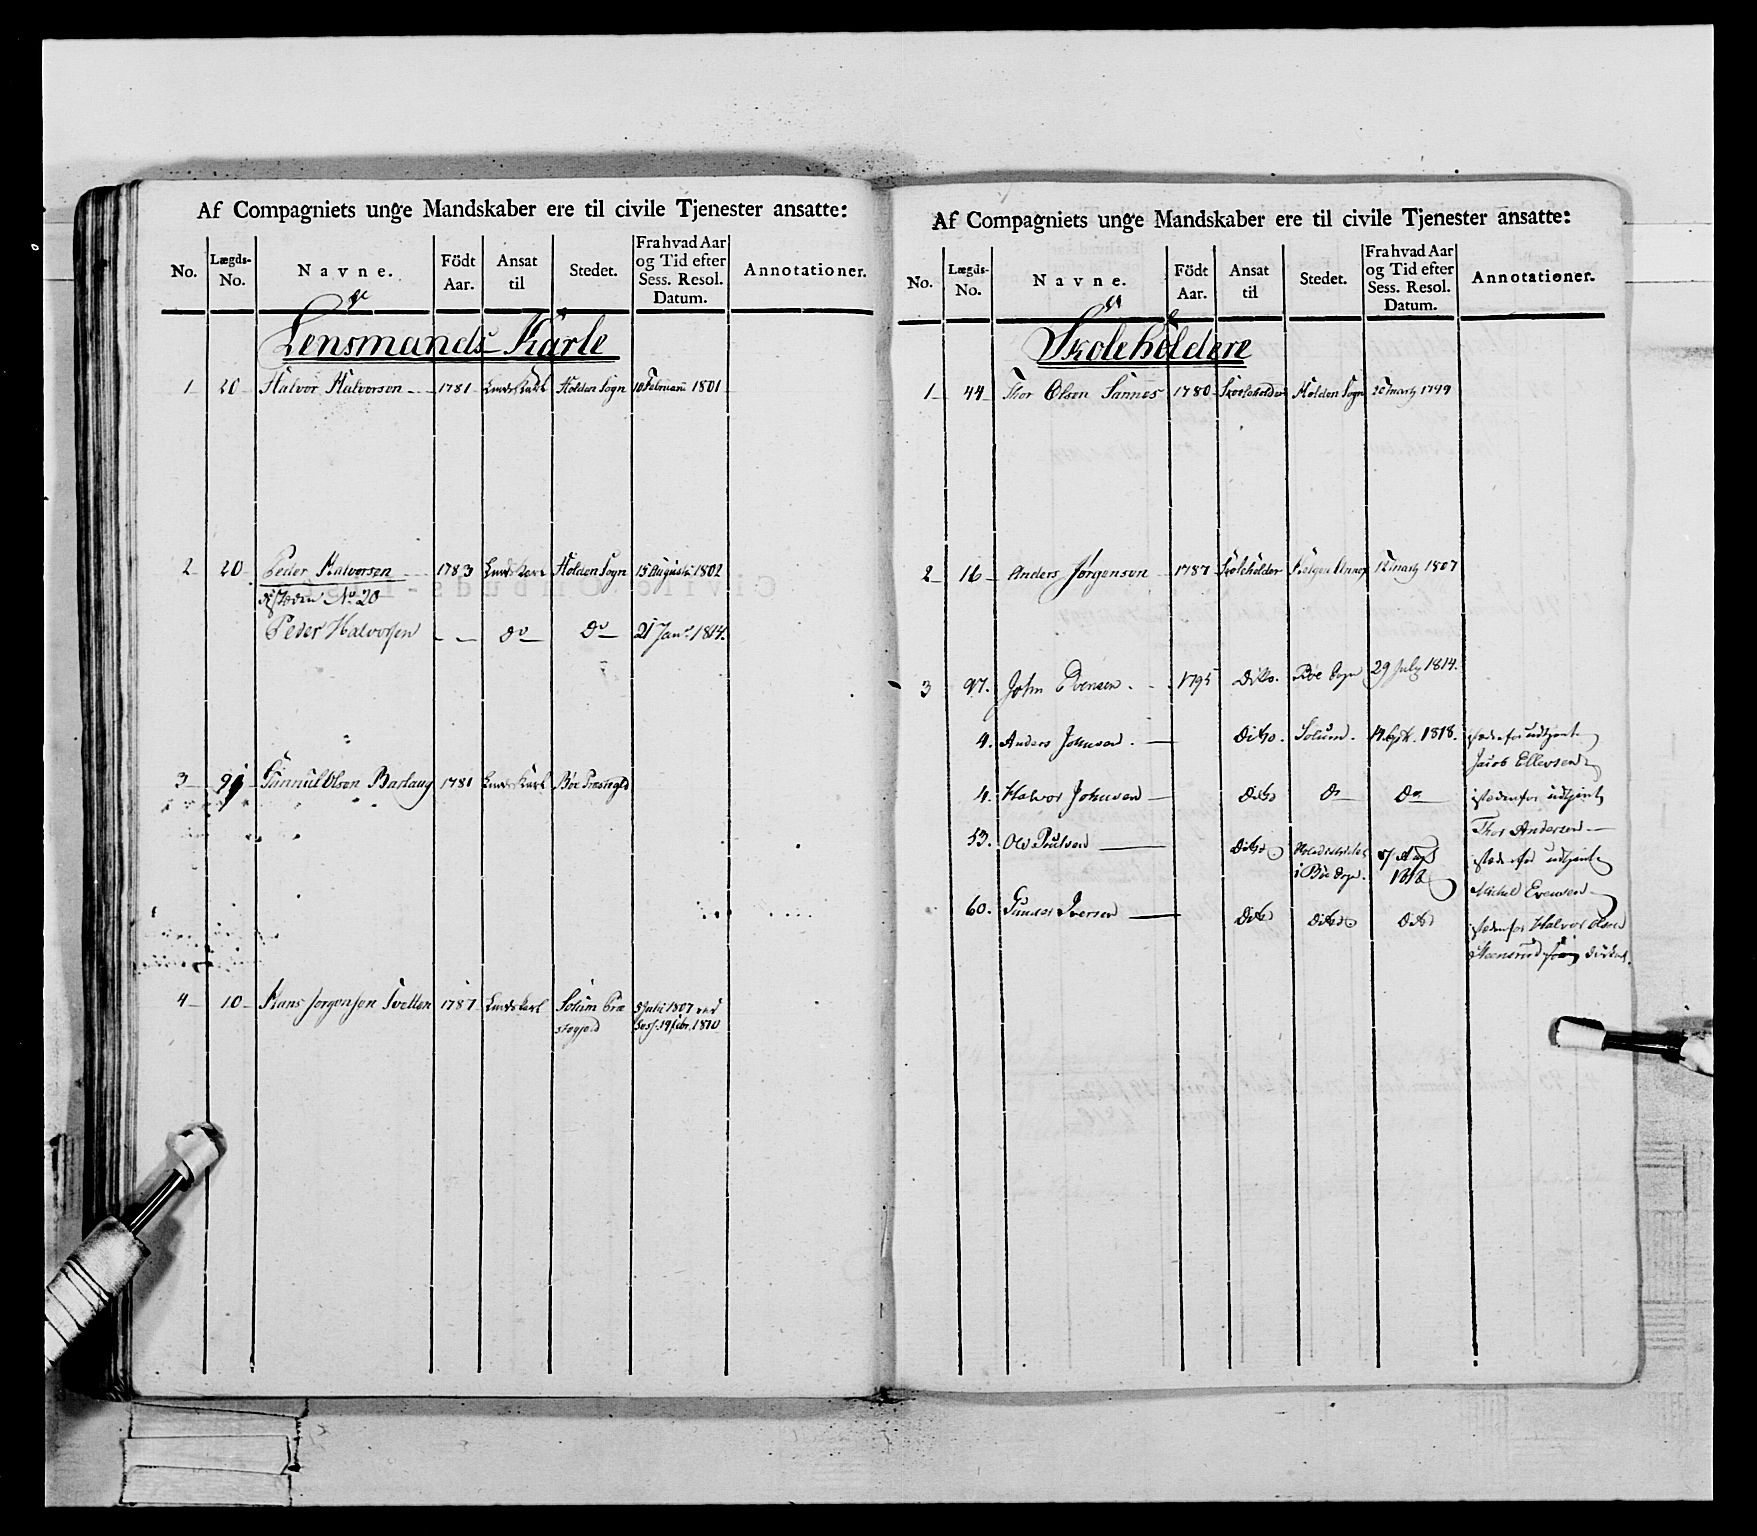 Af Compagniets unge Mandskaber ere til civile Tjenester ansatte:
No. Lægds-No. Navne. Födt Aar. Ansat til Stedet. Fra hvad Aar og Tid efter Sess. Resol. Datum. Annotationer.
Lensmands-Karle
1 20 Halvor Halvorsen 1781 Holden Sogn 10 Februarii 1801
2 20 Peder Halvorsen 1783 Holden Sogn 15 Augusti 1802
No 20
Peder Halvorsen do Do 21 Janr 1814.
3 Gunnul Olsen Barlaug 1781 Böe Præstegd
4 10 Hans Jørgensen Tvetten 1787 Solum Præ 5 Julii 1807 ved
stegjeld Sess. 19 febr. 1810
Af Compagniets unge Mandskaber ere til civile Tjenester ansatte:
No. Lægds-No. Navne. Födt Aar. Ansat til Stedet. Fra hvad Aar og Tid efter Sess. Resol. Datum. Annotationer.
Skoleholdere
1 44 Thor Olsen Sannes 1780 Skoleholder Holden Sogn 20 Marty 1799
2 16 Anders Jørgensen 1787 Skoleholder Annex 12 Marty 1807
3 97. John Evensen 1795 Dito. Böe Sogn 29 July 1814.
4. Anders Johnsen Ditto. Solum. 1818. istedenfor udtjent
Jacob Ellevsen
4. Halvor Johnsen Ditto Do Do istedenfor udtjent
Thor Andersen
53. Ole Poulsen Ditto 1818 istedenfor udtjent
i Böe Sogn. Michel Evensen
60. Gunder Iversen Ditto Ditto Ditto istedenfor Halvor Olsen
Steensrud